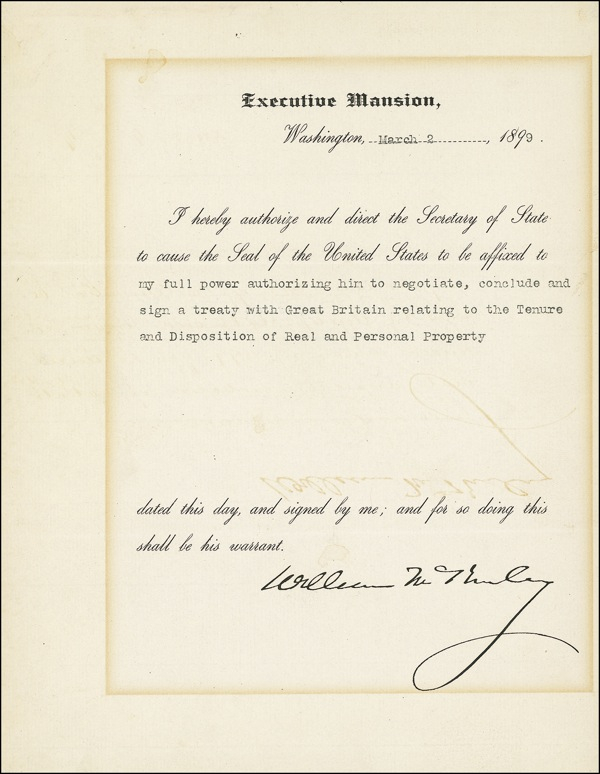 Executive Mansion,
Washington, March 2, 1899.
I hereby authorize and direct the Secretary of State
to cause the Seal of the United States to be affixed to
my full power authorizing him to negotiate, conclude and
sign a treaty with Great Britain relating to the Tenure
and Disposition of Real and Personal Property
dated this day, and signed by me; and for so doing this
shall be his warrant.
William McKinley